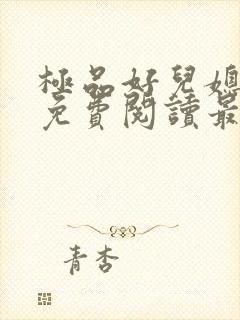 極品好兒媳
免費閱讀最
青杏